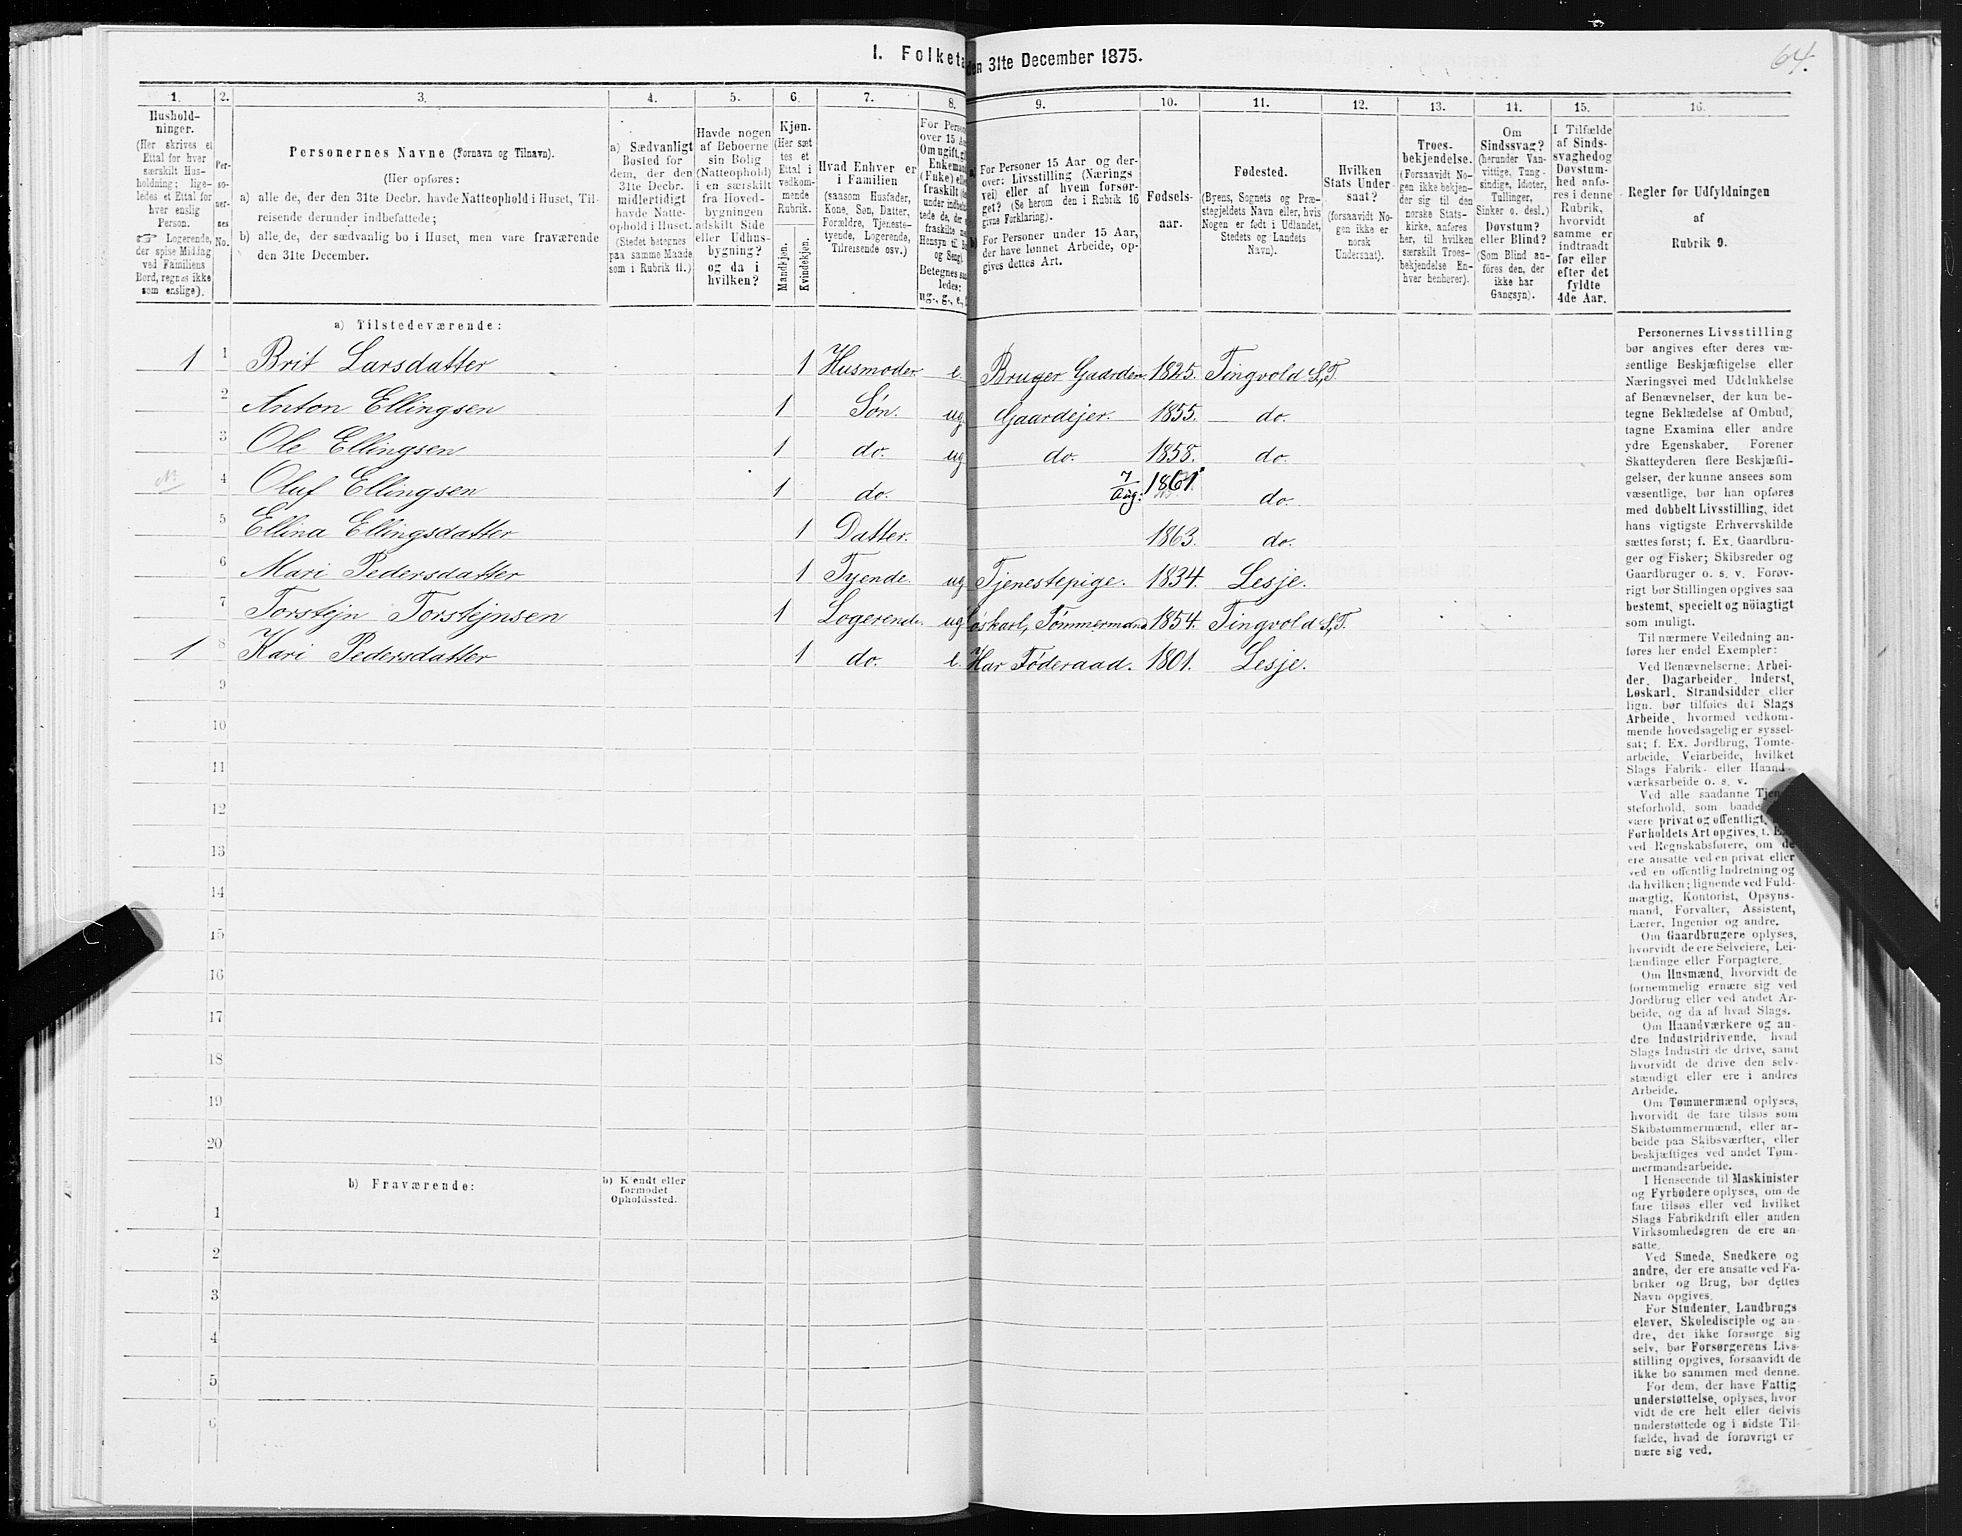 I. Folketæ
den 31te December 1875.
64.
1.
Hushold-
ninger.
(Her skrives et
Ettal for hver
særskilt Hus-
holdning; lige-
ledes et Ettal for
hver enslig
Person.
☞ Logerende,
der spise Middag
ved Familiens
Bord, regnes ikke
som enslige).
2.
Per-
so-
ner-
nes
No.
3.
Personernes Navne (Fornavn og Tilnavn).
(Her opføres:
a) alle de, der den 31te Decbr. havde Natteophold i Huset, Til-
reisende derunder indbefattede;
b) alle de, der sædvanlig bo i Huset, men vare fraværende
den 31te December.
4.
a) Sædvanligt
Bosted for
dem, der den
31te Decbr.
midlertidigt
havde Natte-
ophold i Huset.
(Stedet betegnes
paa samme Maade
som i Rubrik 11.)
5.
Havde nogen
af Beboerne
sin Bolig
(Natteophold)
i en særskilt
fra Hoved-
bygningen
adskilt Side
eller Udhus-
bygning?
og da i
hvilken?
6.
Kjøn.
(Her sæt
tes et
Ettal i
vedkom-
mende
Rubrik.
Mandkjøn.
Kvindekjøn.
7.
Hvad Enhver er
i Familien
(saasom Husfader,
Kone, Søn, Datter,
Forældre, Tjeneste-
tyende, Logerende,
Tilreisende osv.)
8.
For Person
over 15 Aa
Om ugift, gi
Enkemand
(Fuke) elle
fraskilt (de
under indbefa
tede de, der e
fraskilte me
Hensyn til Bo
og Seng).
Betegnes saa
ledes:
ug., g., e.,
9.
a. For Personer 15 Aar og der-
over: Livsstilling (Nærings
vei) eller af hvem forsør-
get? (Se herom den i Rubrik 16
givne Forklaring).
b. For Personer under 15 Aar,
der have lønnet Arbeide, op-
gives dettes Art.
10.
Fødsels-
aar.
11.
Fødested.
(Byens, Sognets og Præ-
stegjeldets Navn eller, hvis
Nogen er født i Udlandet,
Stedets og Landets
Navn).
12.
Hvilken
Stats Under
saat?
(forsaavidt No-
gen ikke er
norsk
Undersaat).
13.
Troes-
bekjendelse.
(Forsaavidt No-
gen ikke bekjen-
der sig til den
norske Stats-
kirke, anføres
her, til hvilken
særskilt Troes-
bekjendelse En-
hver henhører).
14.
Om
Sindssvag?
(herunder Van-
vittige, Tung-
sindige, Idioter,
Tullinger,
Sinker o. desl.)
Døvstum?
eller Blind?
(Som Blind an-
føres den, der
ikke har
Gangsyn).
15.
I Tilfælde
af Sinds-
svaghed og
Døvstum-
hed anfø-
res i denne
Rubrik,
hvorvidt
samme er
indtraadt
før eller
efter det
fyldte
4de Aar.
16.
Regler for Udfyldningen
af
Rubrik 9.
a) Tilstedeværende:
1 1 Brit Larsdatter 1 Husmoder e. Bruger Gaarden. 1825. Tingvold S,T.
2 Anton Ellingsen 1 Søn. ug Gaardejer. 1855. do.
3 Ole Ellingsen 1 do. ug do. 1858. do.
4 Oluf Ellingsen 1 do. 7/Aug: 1861. do.
5 Ellina Ellingsdatter 1 Datter. 1863. do.
6 Mari Pedersdatter 1 Tyende. ug Tjenestepige. 1834. Lesje.
7 Torstejn Torstejnsen 1 Logerende. ug Løskarl, Tømmermand 1854. Tingvold S,T.
1 8 Kari Pedersdatter 1 do. e. Har Föderaad. 1801. Lesje.
9
10
11
12
13
14
15
16
17
18
19
20
b) Fraværende:
b) Kjendt eller
formodet
Opholdssted.
1
2
3
4
5
6
Personernes Livsstilling
bør angives efter deres væ-
sentlige Beskjæftigelse eller
Næringsvei med Udelukkelse
af Benævnelser, der kun be-
tegne Beklædelse af Ombud,
tagne Examina eller andre
ydre Egenskaber. Forener
Skatteyderen flere Beskjæfti-
gelser, der kunne ansees som
væsentlige, bør han opføres
med dobbelt Livsstilling, idet
hans vigtigste Erhvervskilde
sættes først; f. Ex. Gaardbru-
ger og Fisker; Skibsreder og
Gaardbruger o. s. v. Forøv-
rigt bør Stillingen opgives saa
bestemt, specielt og nöiagtigt
som muligt.
Til nærmere Veiledning an-
føres her endel Exempler:
Ved Benævnelserne: Arbei-
der, Dagarbeider, Inderst,
Løskarl, Strandsidder eller
lign. bør tilføies det Slags
Arbeide, hvormed vedkom-
mende hovedsagelig er syssel-
sat; f. Ex. Jordbrug, Tomte-
arbeide, Veiarbeide, hvilket
Slags Fabrik- eller Haand-
værksarbeide o. s. v.
Ved alle saadanne Tjen
steforhold, som baade
være privat og offentligt,
Forholdets Art opgives, f. E
ved Regnskabsførere, om de
ere ansatte ved en privat eller
ved en offentlig Indretning og
da hvilken; lignende ved Fuld-
mægtig, Kontorist, Opsyns-
mand, Forvalter, Assistent,
Lærer, Ingeniør og andre.
Om Gaardbrugere oplyses,
hvorvidt de ere Selveiere, Lei-
lændinge eller Forpagtere.
Om Husmænd, hvorvidt de
fornemmelig ernære sig ved
Jordbrug eller ved andet Ar-
beide, og da af hvad Slags.
Om Haandværkere og an-
dre Industridrivende, hvad
Slags Industri de drive, samt
hvorvidt de drive den selv-
stændigt eller ere i andres
Arbeide.
Om Tømmermænd oplyses,
hvorvidt de fare tilsøs som
Skibstømmermænd, eller ar-
beide paa Skibsværfter, eller
beskjæftiges ved andet Tøm-
mermandsarbeide.
I Henseende til Maskinister
og Fyrbødere oplyses, om de
fare tilsøs eller ved hvilket
Slags Fabrikdrift eller anden
Virksomhedsgren de ere an-
satte.
Ved Smede, Snedkere og
andre, der ere ansatte ved Fa-
briker og Brug, bør dettes
Navn opgives.
For Studenter, Landbrugs
elever, Skoledisciple og an-
dre, der ikke forsørge sig
selv, bør Forsørgerens Livs-
stilling opgives, forsaavidt de
ikke bo sammen med denne.
For dem, der have Fattig
understøttelse, oplyses, hvor
vidt de ere helt eller delvis
understøttede og i sidste Til-
fælde, hvad de forøvrigt er
nære sig ved.